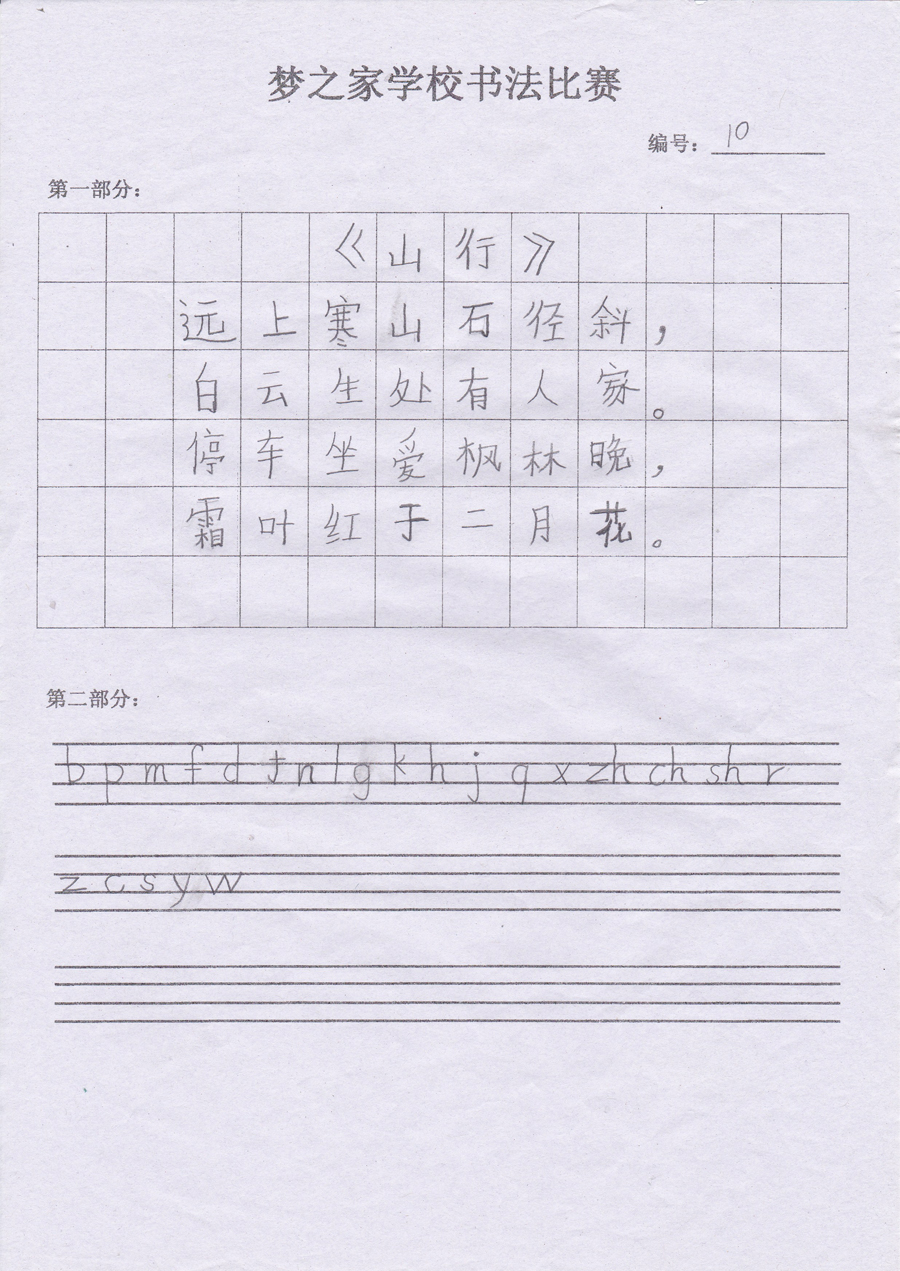 梦之家学校书法比赛
编号：10
第一部分：
《山行》
远上寒山石径斜，
白云生处有人家。
停车坐爱枫林晚，
霜叶红于二月花。
第二部分：
b p m f d t n l g k h j q x zh ch sh r
z c s y w